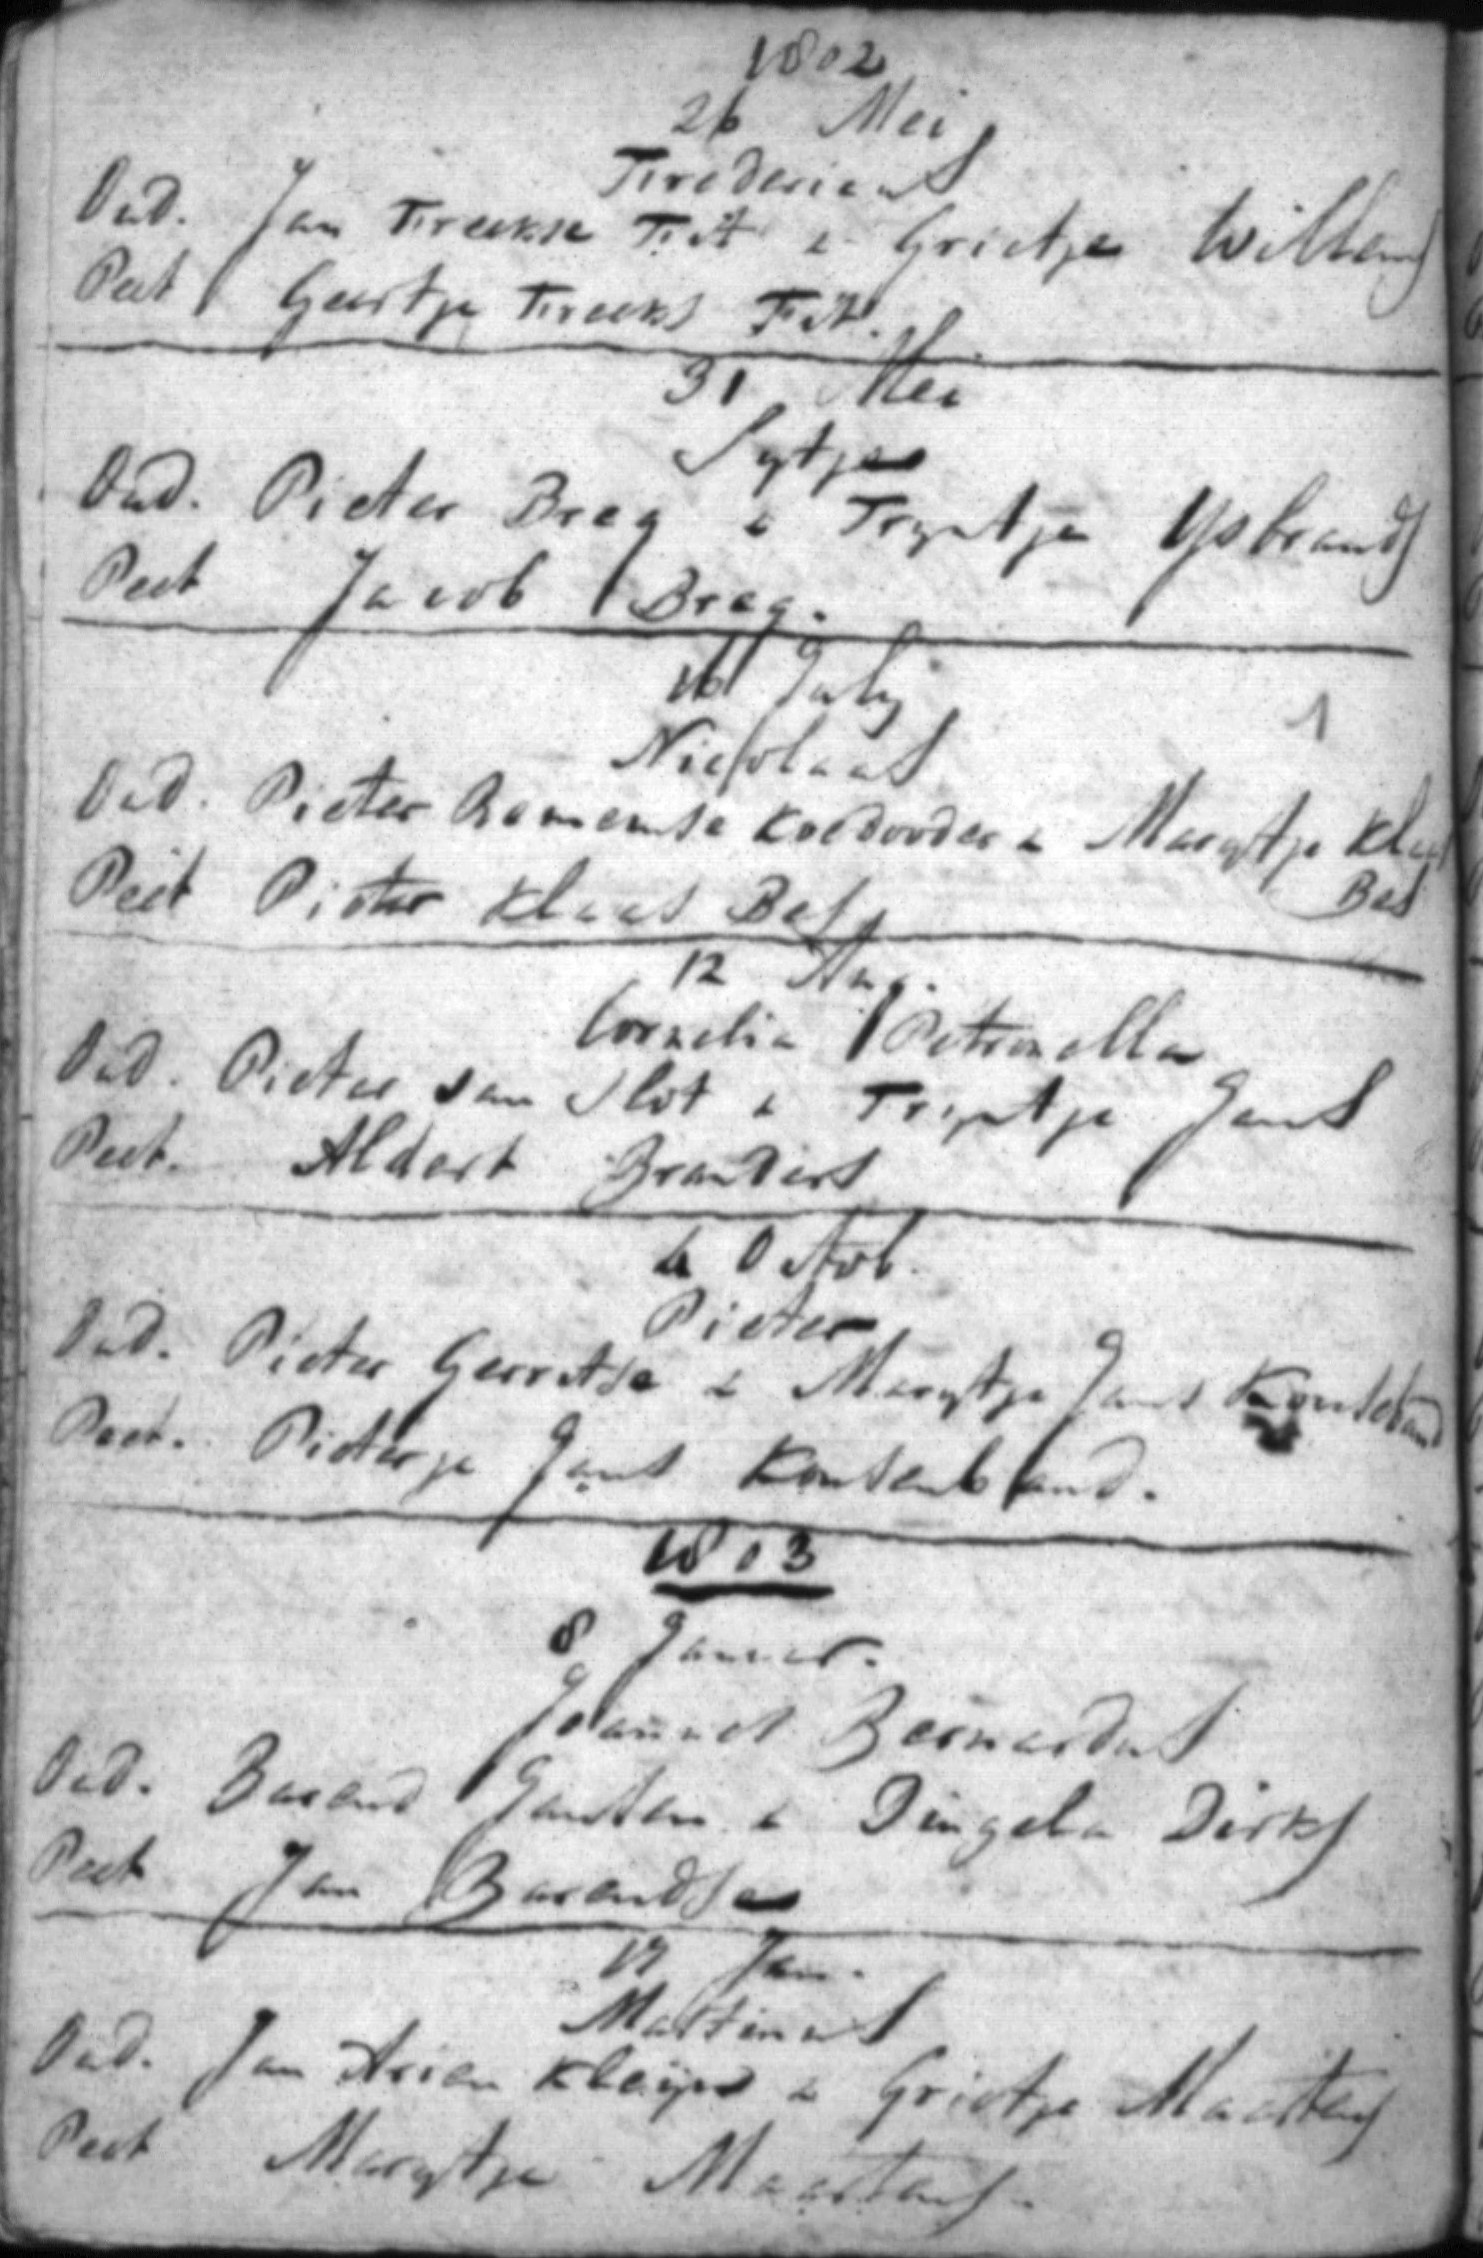 1802
26 Mei
Fredericus
Oud. Jan Freekse Fit & Grietje Willems
Peet Geertje Freeks Fit.
31 Mei
Sytje
Oud. Pieter Breg & Tryntje Ysbrands
Peet Jacob Breg.
16 July
Nicolaas
Oud. Pieter Remmentse Koedooder & Marytje Klaas
Bes
Peet Pieter Klaas Bes
12 Aug.
Cornelia Petronella
Oud. Pieter van Slot & Tryntje Jans
Peet. Aldert Branders
4 Octob.
Pieter
Oud. Pieter Gerretse & Marytje Jans
Peet. Pietertje Jans
1803
8 Januar.
Joannes Bernardus
Oud. Barend Jansen & Dingela Dirks
Peet Jan Barendse
Jan.
Martinus
Oud. Jan Arien & Grietje Maartens
Peet Marytje Maartens.